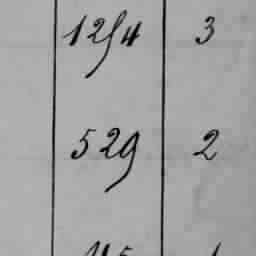 1254 3
529 2